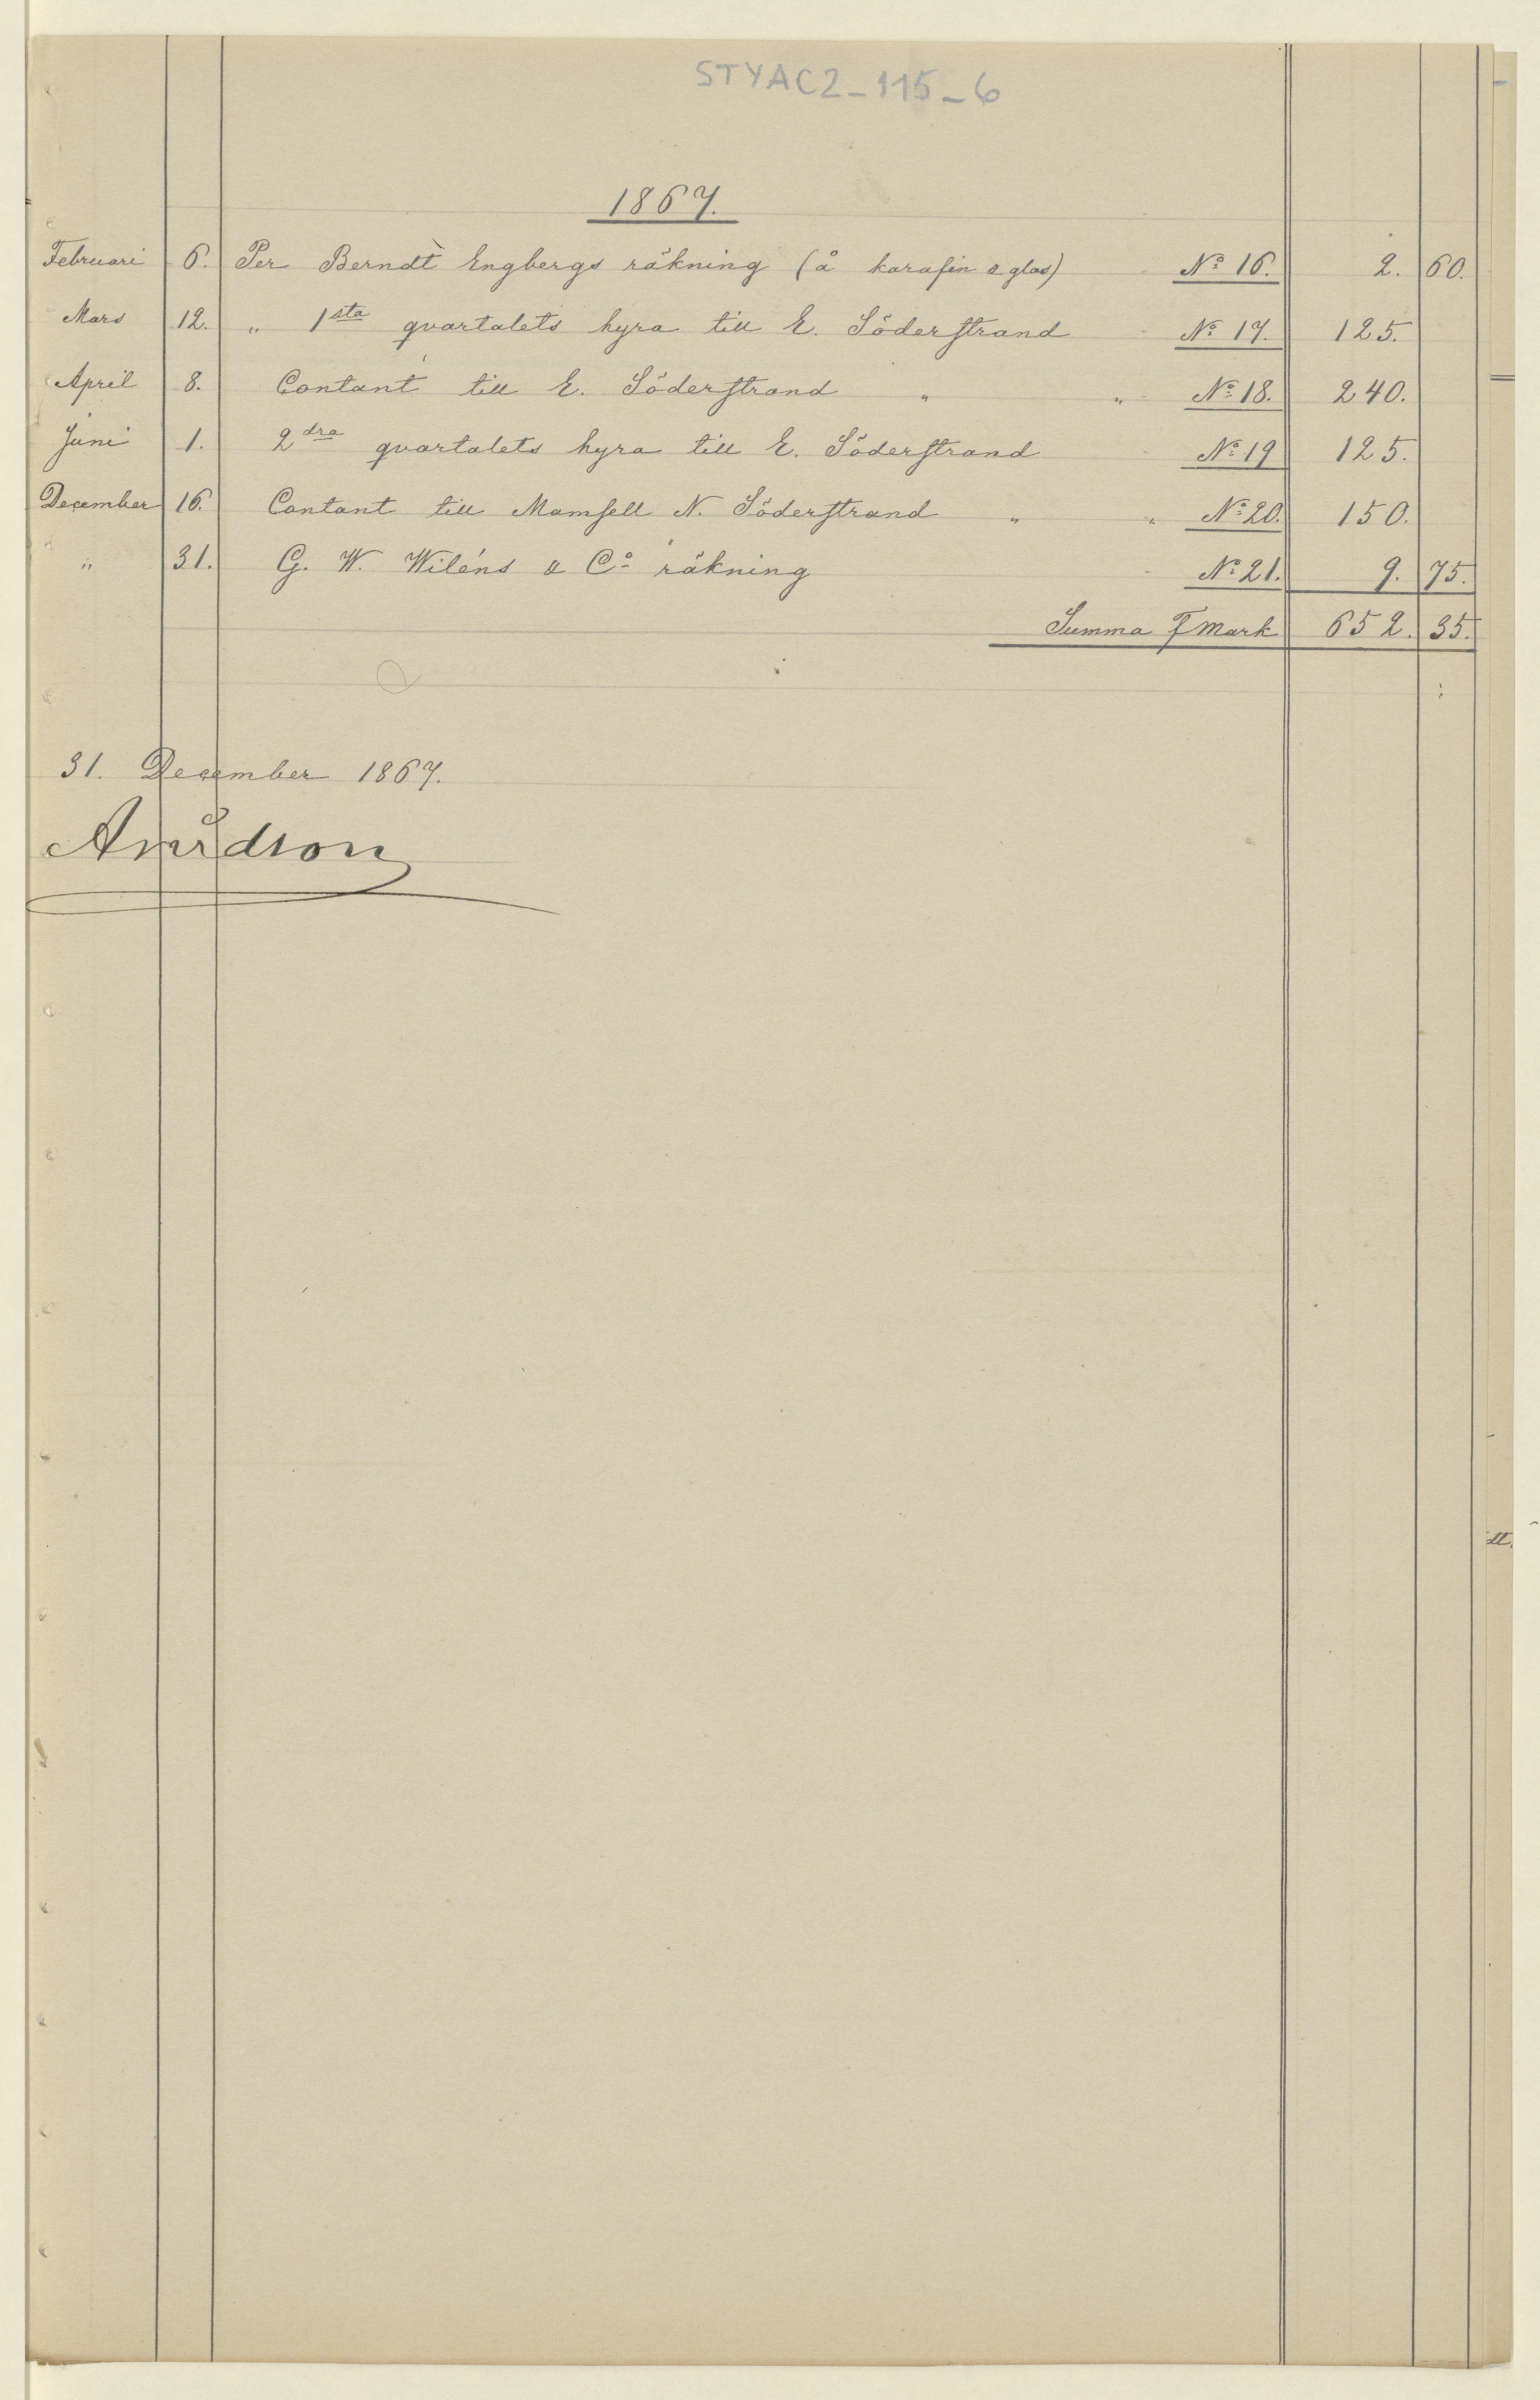 STYAC2_115_6
1867.
Februari 6. Per Berndt Engbergs räkning (å karafin & glas) No 16. 2. 60.
Mars 12. „ 1sta qvartalets hyra till E. Söderstrand No 17. 125.
April 8. Contant till E. Söderstrand „ „ No 18. 240.
Juni 1. 2dra qvartalets hyra till E. Söderstrand No 19 125.
December 16. Contant till Mamsell N. Söderstrand „ „ No 20. 150.
„ 31. G. W. Wiléns & Co räkning No 21. 9. 75.
Summa Fmark 652. 35.
31. December 1867.